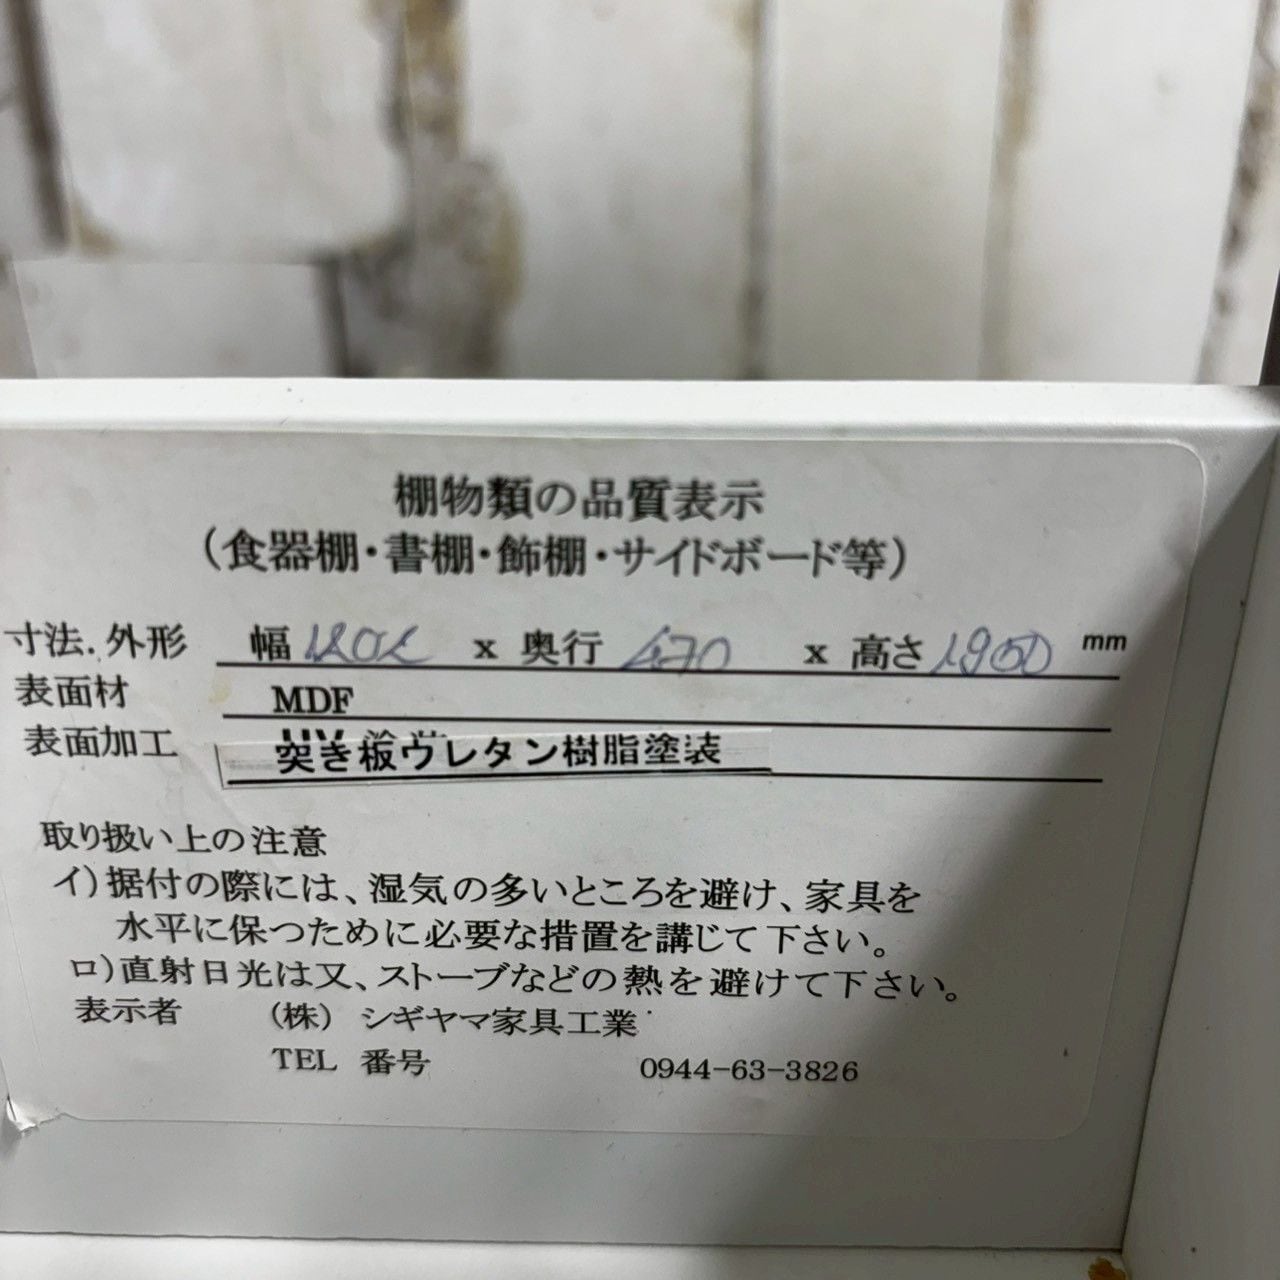 棚物類の品質表示
(食器棚・書棚・飾棚・サイドボード等)
寸法.外形 幅 x 奥行 470 x 高さ 1900 mm
表面材 MDF
表面加工 突き板ウレタン樹脂塗装
取り扱い上の注意
イ)据付の際には、湿気の多いところを避け、家具を
水平に保つために必要な措置を講じて下さい。
ロ)直射日光は又、ストーブなどの熱を避けて下さい。
表示者 (株) シギヤマ家具工業
TEL 番号 0944-63-3826